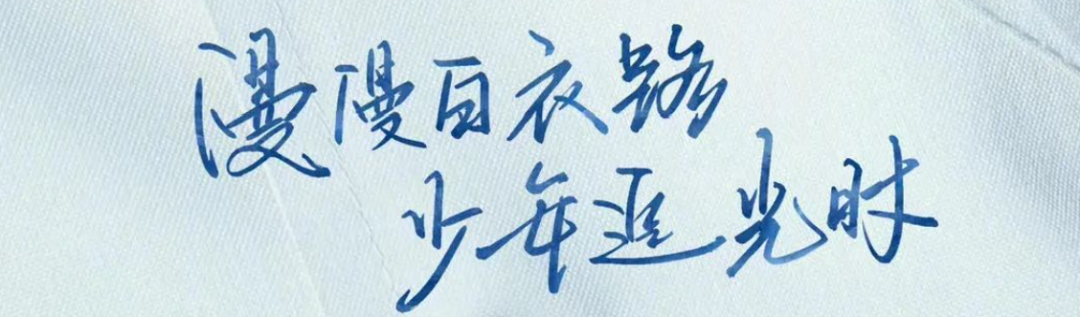 漫漫白衣路
少年追光时